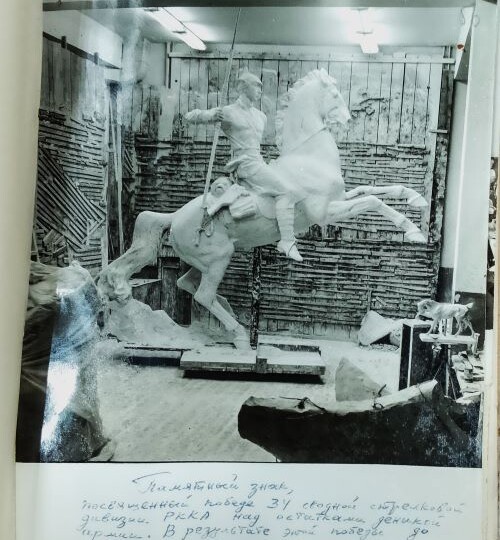 Памятный знак,
посвященный победе 34 сводной стрелковой
дивизии. РККА над остатками деникой
армии. В результате этой победы до